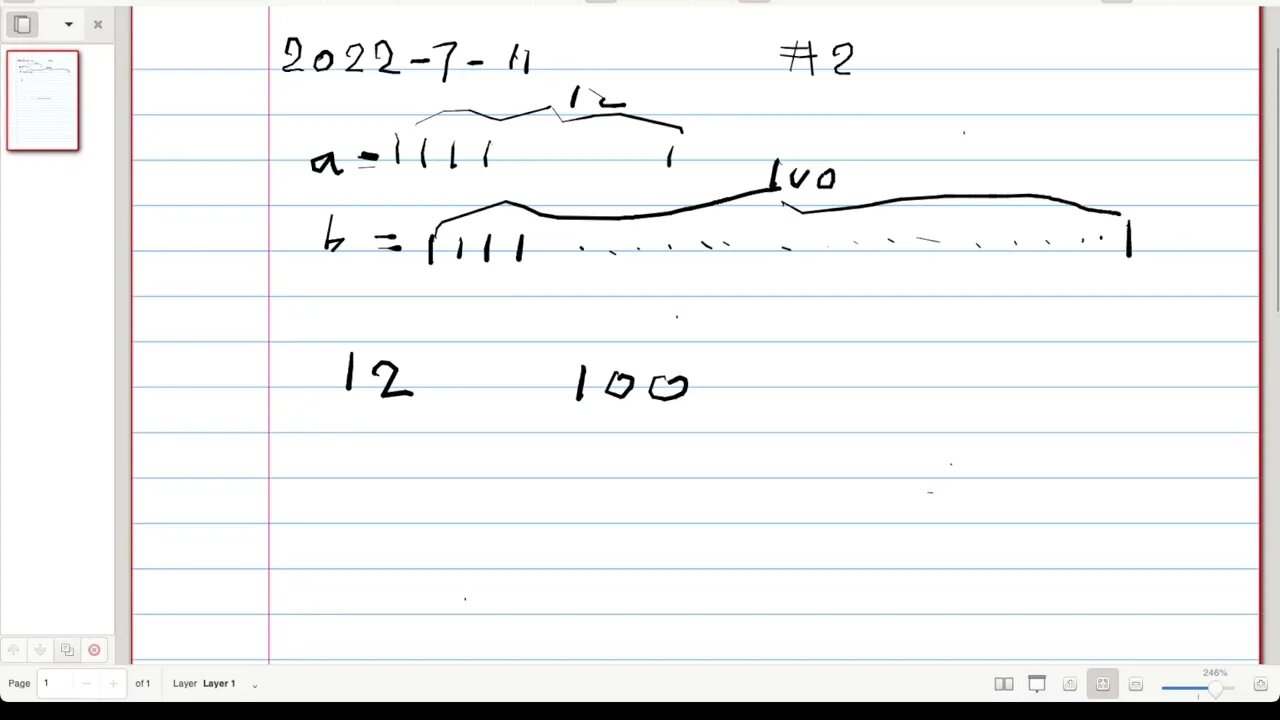 2022-7-11 #2
12
a=1111 1
100
b=1111 . . . . . . . . . . . . . . . 1
12 100
Page 1 of 1 Layer Layer 1 246%